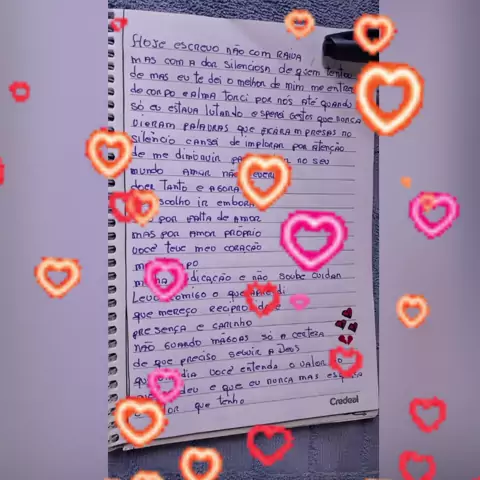 Hoje escrevo não com raiva
mas com a dor silenciosa de quem tentou
de mais eu te dei o melhor de mim me entreguei
de corpo e alma torci por nós até quando
só eu estava lutando esperei gestos que nunca
vieram palavras que ficaram presas no
silêncio cansei de implorar por atenção
de me diminuir no seu
mundo amor não
doer tanto e agora
escolho ir embora
por falta de amor
mas por amor próprio
você teve meu coração
e não soube cuidar
Levo comigo o que
que mereço
presença e carinho
não guardo mágoas só a certeza
de que preciso seguir a Deus
dia você entenda o valor
deu e que eu nunca mais
que tenho
Credeal